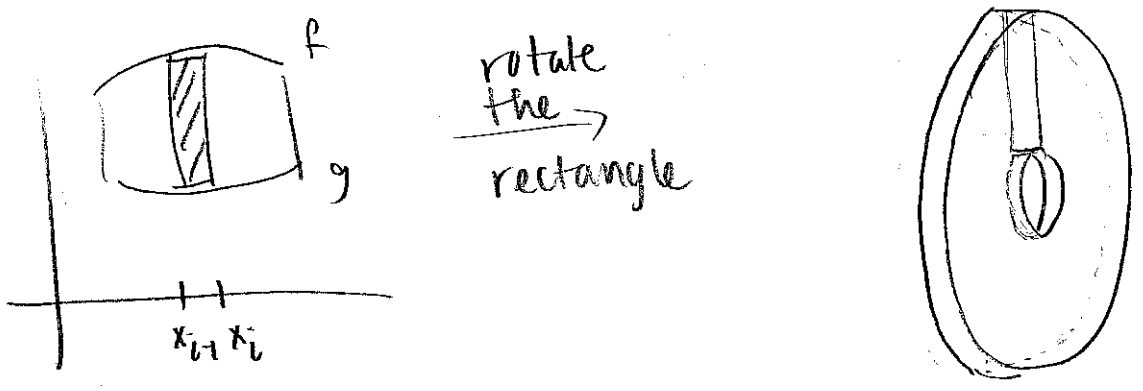 f
g
x_{i-1} x_i
rotate
the
rectangle